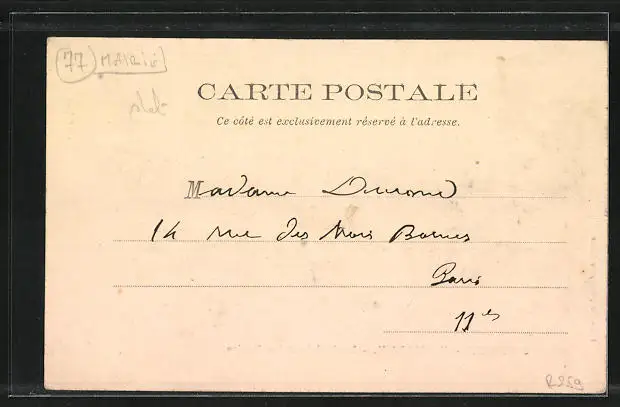 77 MARIÉ
CARTE POSTALE
Ce côté est exclusivement réservé à l'adresse.
Madame Durand
14 rue des trois Bornes
Paris
11es
R259